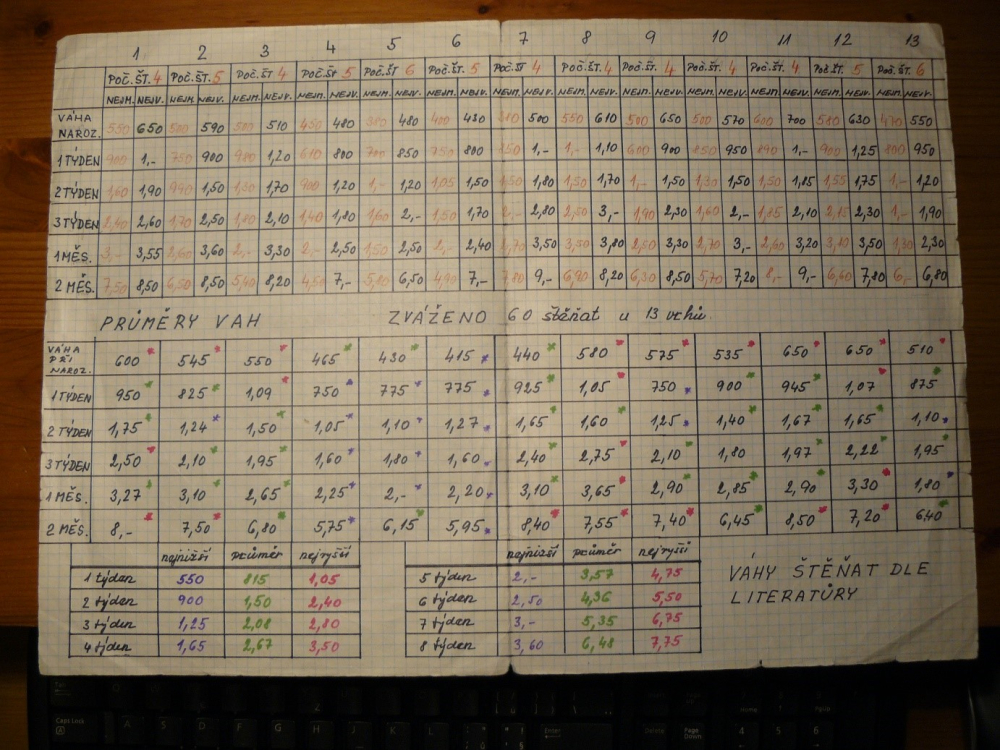 1 2 3 4 5 6 7 8 9 10 11 12 13
POČ. ŠT. 4 POČ. ŠT. 5 POČ. ŠT 4 POČ. ŠT 5 POČ. ŠT 6 POČ. ŠT. 5 POČ. ŠT 4 POČ. ŠT. 4 POČ. ŠT. 4 POČ. ŠT. 4 POČ. ŠT. 4 POČ. ŠT. 5 POČ. ŠT. 6
NEJM. NEJV. NEJM. NEJV. NEJM. NEJV. NEJM. NEJV. NEJM. NEJV. NEJM. NEJV. NEJM. NEJV. NEJM. NEJV. NEJM. NEJV. NEJM. NEJV. NEJM. NEJV. NEJM. NEJV. NEJM. NEJV.
VÁHA
NAROZ. 550 650 500 590 500 510 450 480 380 480 400 430 500 550 610 500 650 500 570 600 700 580 630 470 550
1 TÝDEN 900 1,- 750 900 900 1,20 610 800 700 850 750 800 850 1,- 1,- 1,10 600 900 850 950 890 1,- 900 1,25 800 950
2 TÝDEN 1,60 1,90 990 1,50 1,30 1,70 900 1,20 1,- 1,20 1,05 1,50 1,50 1,80 1,50 1,70 1,- 1,50 1,30 1,50 1,50 1,85 1,55 1,75 1,- 1,20
3 TÝDEN 2,40 2,60 1,70 2,50 1,80 2,10 1,40 1,80 1,60 2,- 1,50 1,70 2,- 2,80 2,50 3,- 1,90 2,30 1,60 2,- 1,85 2,10 2,15 2,30 1,- 1,90
1 MĚS. 3,- 3,55 2,60 3,60 2,- 3,30 2,- 2,50 1,50 2,50 2,- 2,40 2,70 3,50 3,50 3,80 2,50 3,30 2,70 3,- 2,60 3,20 3,10 3,50 1,30 2,30
2 MĚS. 7,50 8,50 6,50 8,50 5,40 8,20 4,50 7,- 5,80 6,50 4,90 7,- 7,80 9,- 6,90 8,20 6,30 8,50 5,70 7,20 8,- 9,- 6,60 7,80 6,- 6,80
PRŮMĚRY VAH ZVÁŽENO 60 štěňat u 13 vrhů.
VÁHA
PŘI
NAROZ. 600 545 550 465 430 415 440 580 575 535 650 650 510
1 TÝDEN 950 825 1,09 750 775 775 925 1,05 750 900 945 1,07 875
2 TÝDEN 1,75 1,24 1,50 1,05 1,10 1,27 1,65 1,60 1,25 1,40 1,67 1,65 1,10
3 TÝDEN 2,50 2,10 1,95 1,60 1,80 1,60 2,40 2,75 2,10 1,80 1,97 2,22 1,95
1 MĚS. 3,27 3,10 2,65 2,25 2,- 2,20 3,10 3,65 2,90 2,85 2,90 3,30 1,80
2 MĚS. 8,- 7,50 6,80 5,75 6,15 5,95 8,40 7,55 7,40 6,45 8,50 7,20 6,40
nejnižší průměr nejvyšší nejnižší průměr nejvyšší
1 týden 550 815 1,05 5 týden 2,- 3,57 4,75
2 týden 900 1,50 2,40 6 týden 2,50 4,36 5,50
3 týden 1,25 2,08 2,80 7 týden 3,- 5,35 6,75
4 týden 1,65 2,67 3,50 8 týden 3,60 6,48 7,75
VÁHY ŠTĚŇAT DLE
LITERATŮRY
Caps Lock
A S D F G H J K L
Enter
Delete
End
Page Down
Home
PgUp